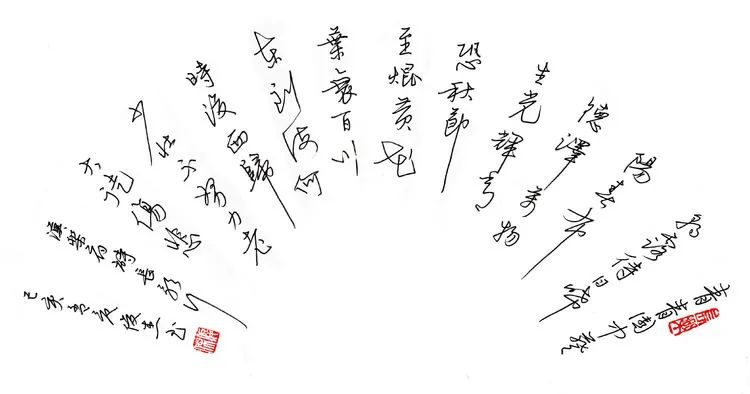 青青園中葵
朝露待日晞
陽春布
德澤萬物
生光輝常
恐秋節
至焜黃花
葉衰百川
東到海何
時復西歸
少壯不努力老
大徒傷悲
漢樂府詩長歌行
己亥書